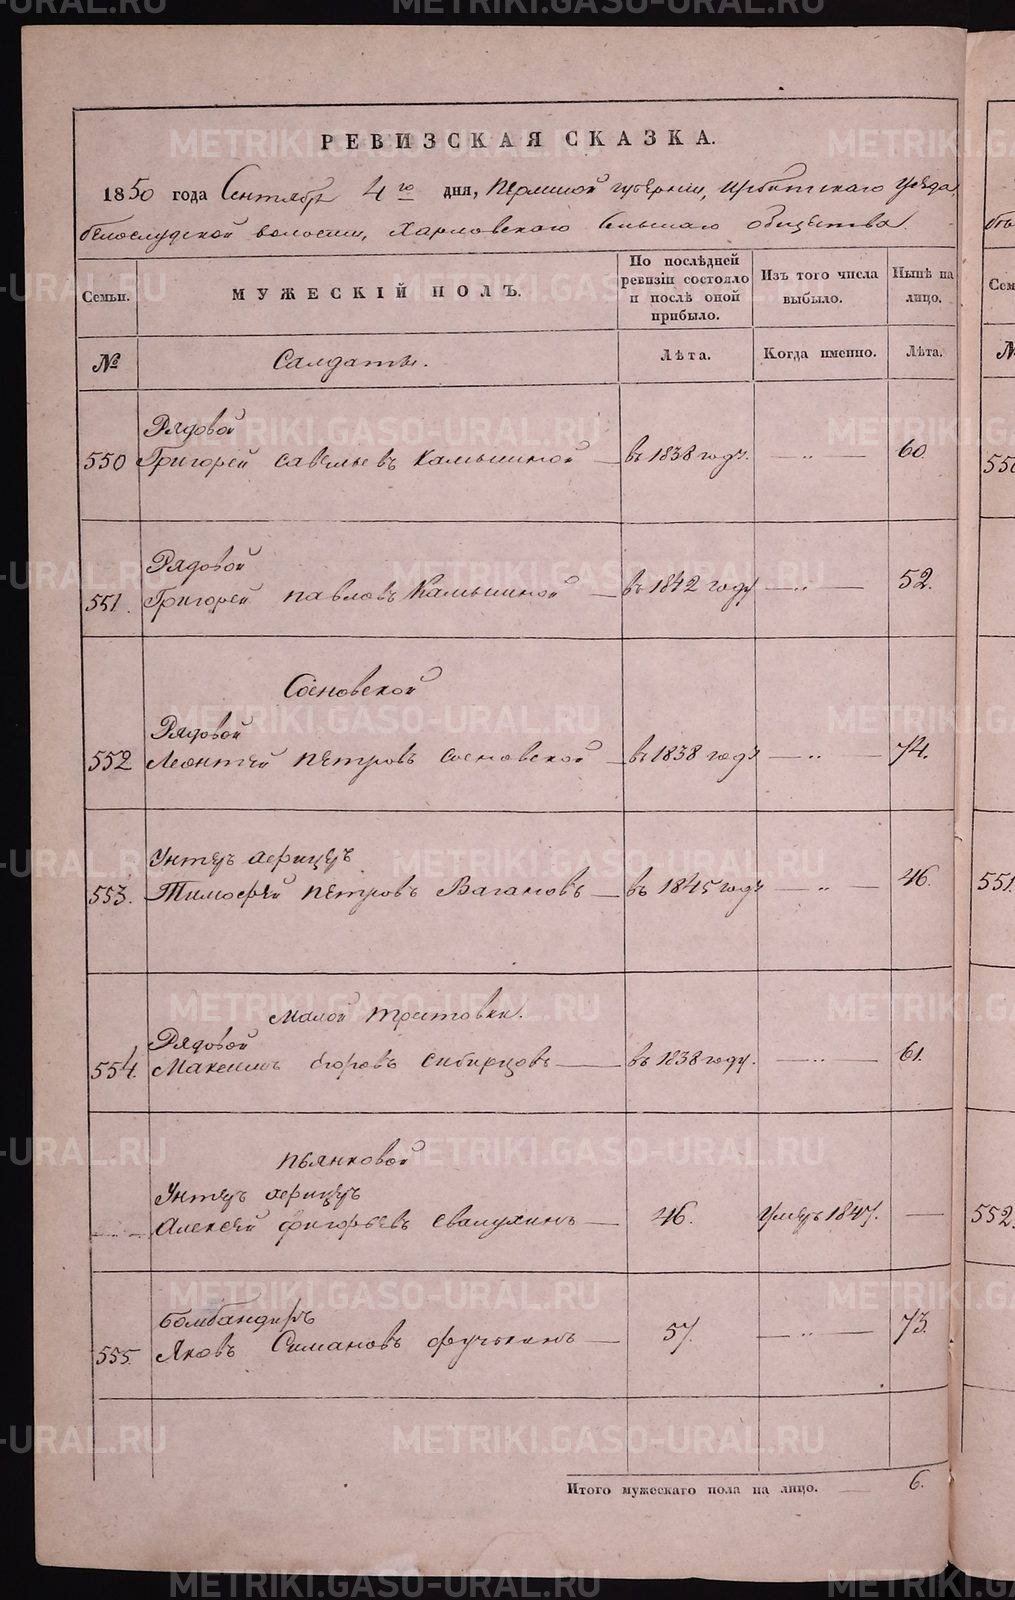 РЕВИЗСКАЯ СКАЗКА.
1850 года Сентября 4го дня, Пермской губернии, Ирбитскаго уезда,
белослудской волости, Харловскаго сельскаго общества.
Семьи.
МУЖЕСКІЙ ПОЛЪ.
По послѣдней ревизіи состояло и послѣ оной прибыло.
Изъ того числа выбыло.
Нынѣ на лицо.
№
Салдаты.
Лѣта.
Когда именно.
Лѣта.
Рядовой
550 Григорей савельевъ Камышной — въ 1838 году. — „ — 60.
Рядовой
551. Григорей павловъ Камышной — въ 1842 году — „ — 52.
Сосновской
Рядовой
552 Леонтей петровъ сосновской — въ 1838 году — „ — 74.
Унтеръ аефицеръ
553. Тимофей петровъ Вагановъ — въ 1845 году — „ — 46.
Малой
Рядовой
554. Максимъ егоровъ сибирцовъ — въ 1838 году. — „ — 61.
пьянковой
Унтеръ аефицеръ
Алексей григорьевъ свалухинъ — 46. Умеръ 1847. —
Бомбандиръ
555. Яковъ Симановъ — 57. — „ — 73.
Итого мужескаго пола на лицо. — 6.
Сем
№
550
551.
552.
METRIKI.GASO-URAL.RU